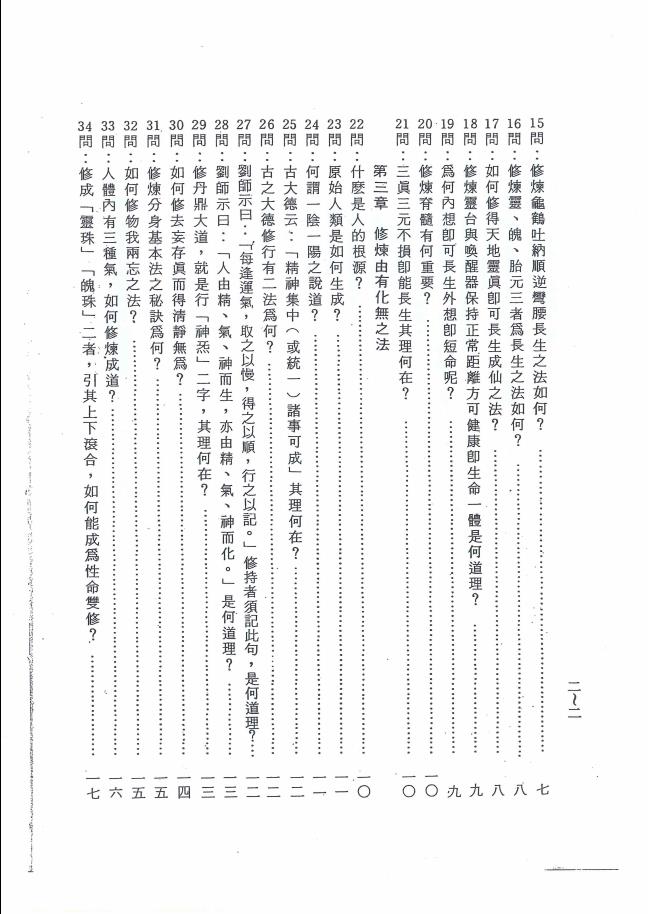 二~二
15問：修煉龜鶴吐納順逆彎腰長生之法如何？……七
16問：修煉靈、魄、胎元三者爲長生之法如何？……八
17問：如何修得天地靈眞卽可長生成仙之法？……八
18問：修煉靈台與喚醒器保持正常距離方可健康卽生命一體是何道理？……九
19問：爲何內想卽可長生外想卽短命呢？……九
20問：修煉脊髓有何重要？……一〇
21問：三眞三元不損卽能長生其理何在？……一〇
第三章　修煉由有化無之法
22問：什麼是人的根源？……一〇
23問：原始人類是如何生成？……一一
24問：何謂一陰一陽之說道？……一一
25問：古大德云：「精神集中（或統一）諸事可成」其理何在？……一二
26問：古之大德修行有二法爲何？……一二
27問：劉師示曰：「每逢運氣，取之以慢，得之以順，行之以記。」修持者須記此句，是何道理？……一二
28問：劉師示曰：「人由精、氣、神而生，亦由精、氣、神而化。」是何道理？……一三
29問：修丹鼎大道，就是行「神炁」二字，其理何在？……一三
30問：如何修去妄存眞而得清靜無爲？……一四
31問：修煉分身基本法之秘訣爲何？……一五
32問：如何修物我兩忘之法？……一五
33問：人體內有三種氣，如何修煉成道？……一六
34問：修成「靈珠」「魄珠」二者，引其上下滾合，如何能成爲性命雙修？……一七